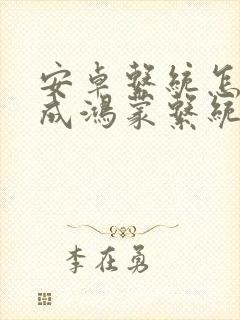 安卓系统怎
成鸿蒙系统
李在勇